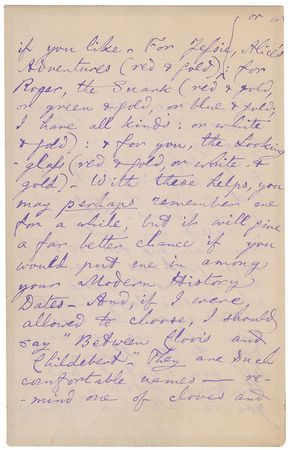 or w
if you like - For Jessie, Alice's
Adventures (red & gold); for
Roger, the Snark (red & gold,
or green & gold, or blue & gold;
I have all kinds: or white
& gold): & for you, the Looking-
glass (red & gold, or white &
gold) - With these helps, you
may perhaps remember me
for a while, but it will give
a far better chance if you
would put me in among
your Modern History
Dates - And, if I were
allowed to choose, I should
say "Between Clovis and
Childebert." They are such
comfortable names — re-
mind one of cloves and